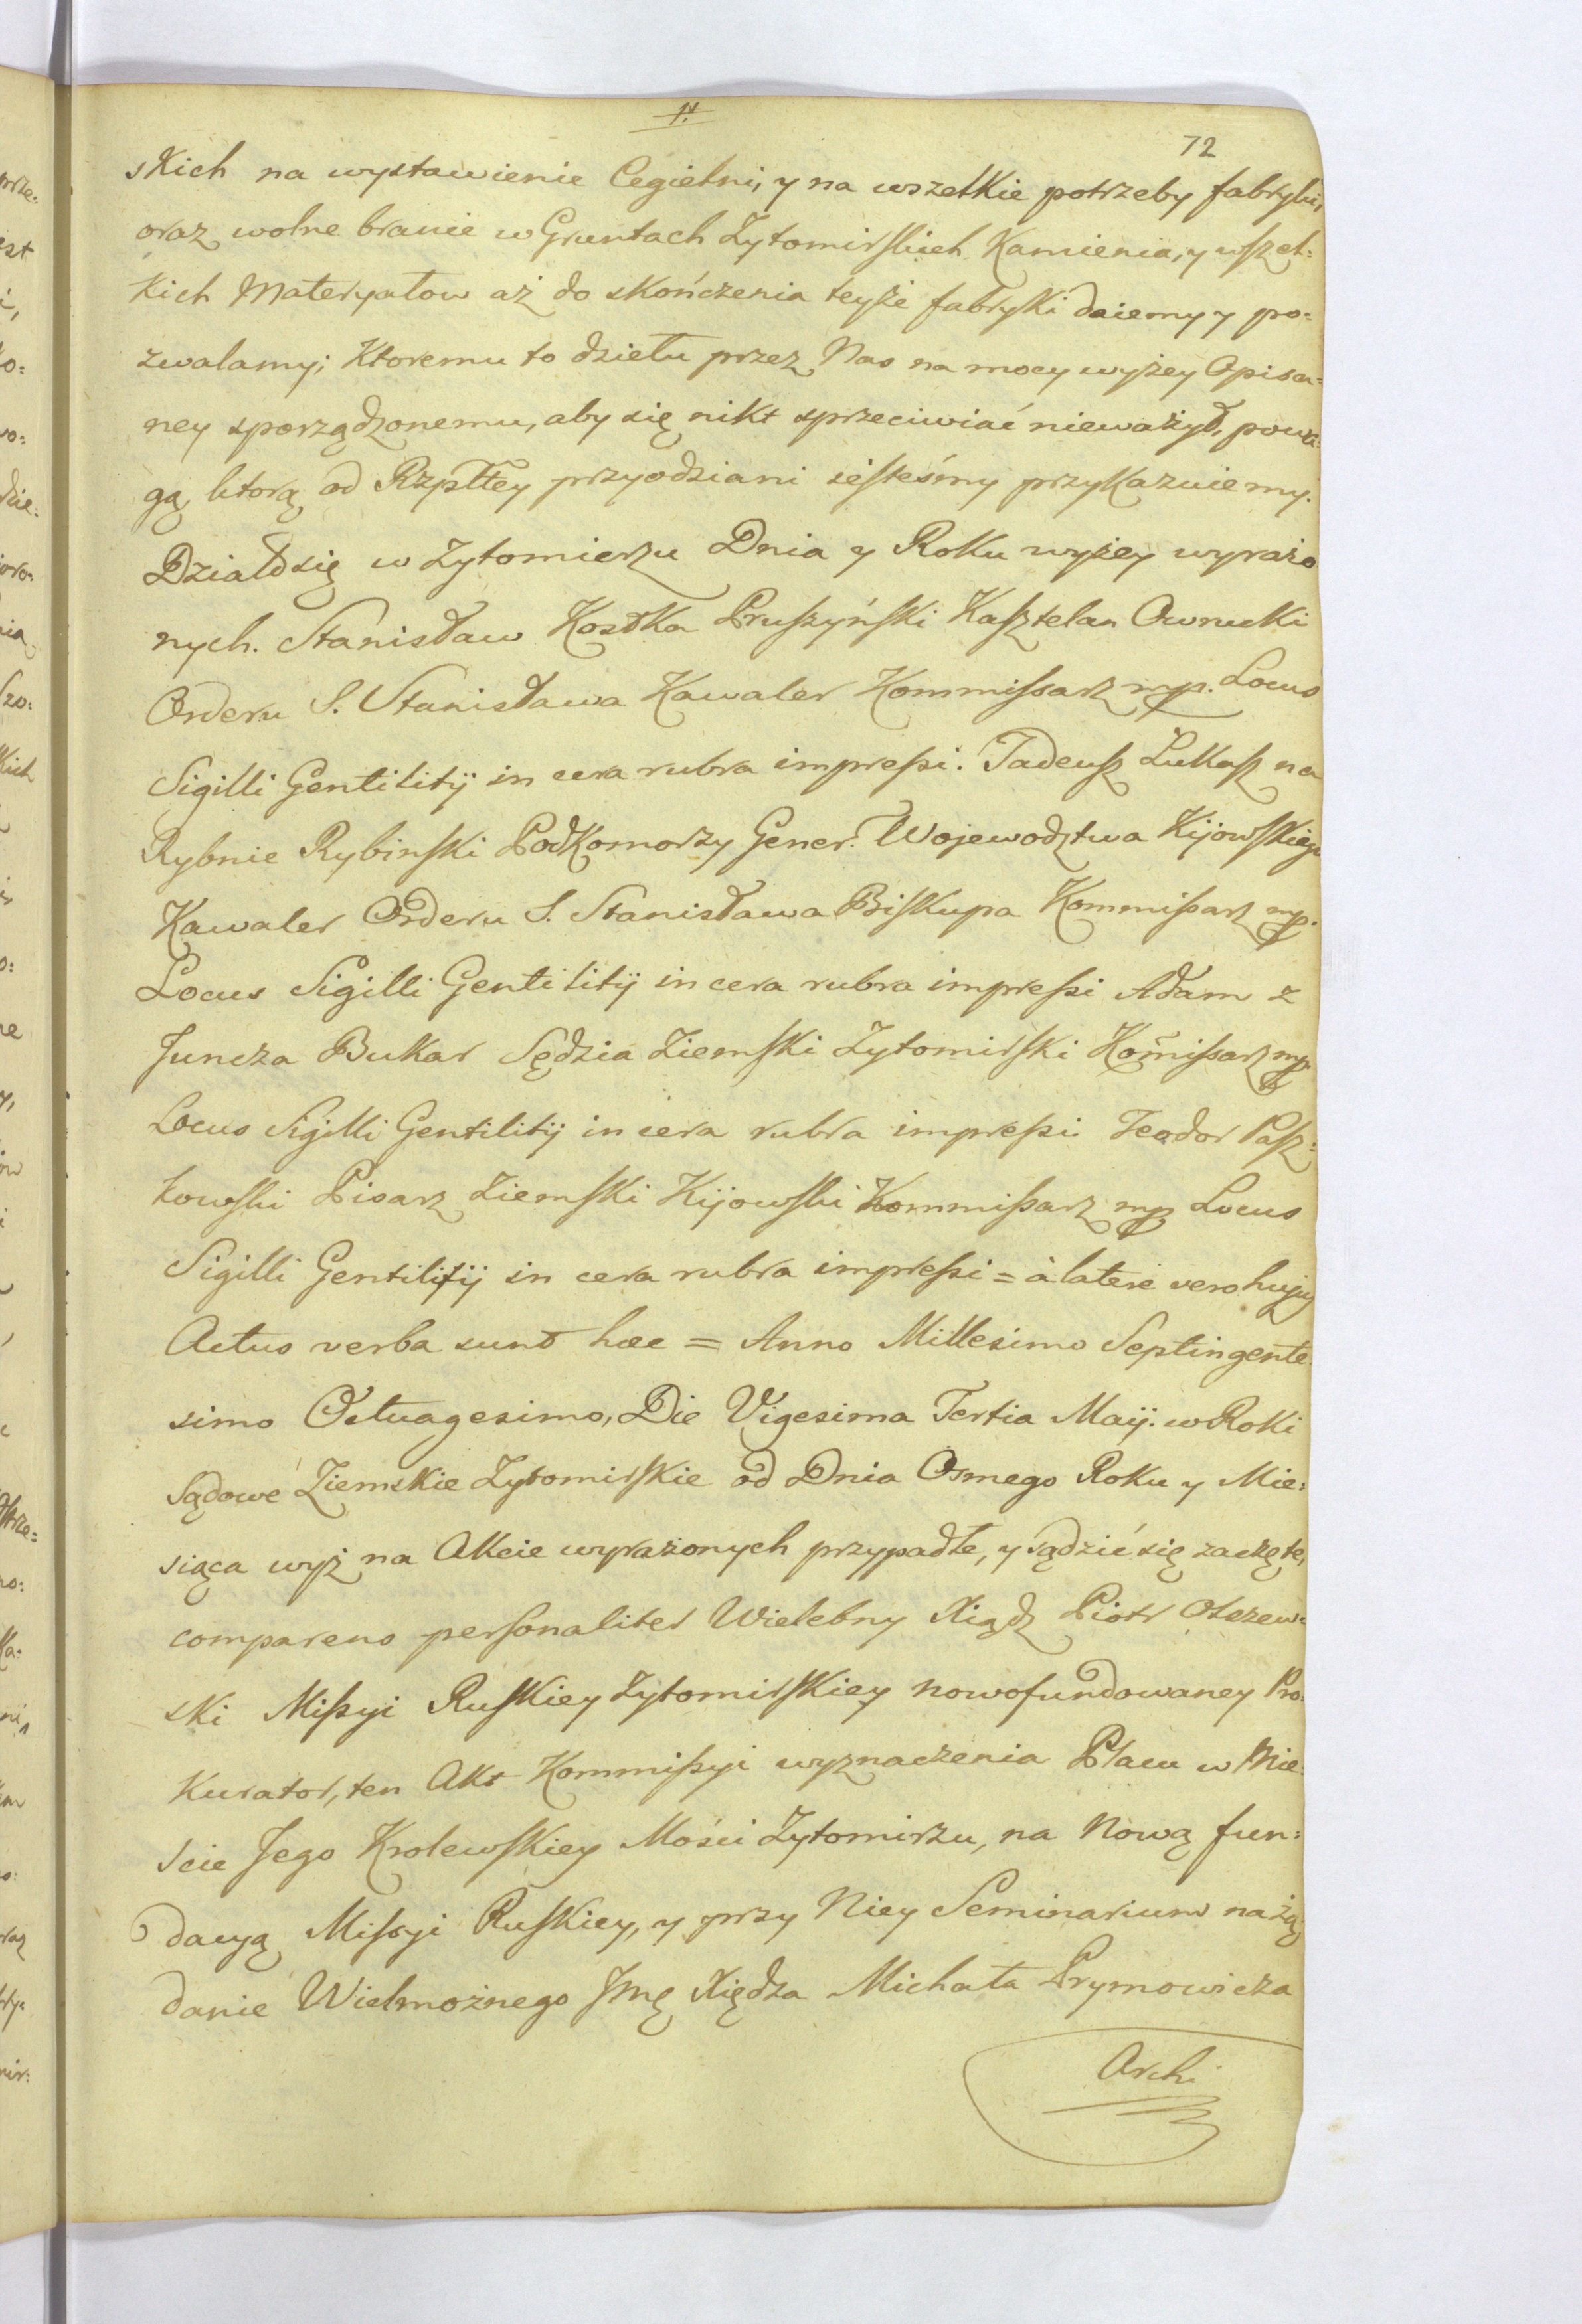 72
skich na wystawienie Cegielni, y na wszelkie potrzeby fabryki,
oraz wolne branie w Gruntach Zytomirskich Kamienia, y wszel=
kich Materyałow aż do skończenia teyże fabryki daiemy y po=
zwalamy; Ktoremu to dziełu przez Nas na mocy wyżey Opisa=
ney sporządzonemu, aby się nikt sprzeciwiać nieważył, powa=
gą, ktorą od Rzpltey przyodziani iesteśmy przykazuiemy.
Działo się w Zytomierzu Dnia y Roku wyżey wyrażo
nych. Stanisław Kostka Pruszyński Kasztelan Owrucki
Orderu S. Stanisława Kawaler Kommissarz mp. Locus
Sigilli Gentilitij in cera rubra impressi. Tadeusz Łukasz na
Rybnie Rybinski Podkomorzy Gener. Wojewodztwa Kijowskiego
Kawaler Orderu S. Stanisława Biskupa Kommissarz mp.
Locus Sigilli Gentilitij in cera rubra impressi Adam z
Juncza Bukar Sędzia Ziemski Zytomirski Kom̃issarz mp.
Locus Sigilli Gentilitij in cera rubra impressi Teodor Pasz=
kowski Pisarz Ziemski Kijowski Kommissarz mp Locus
Sigilli Gentilitij in cera rubra impressi = à latere vero hujus
Actus verba sunt hæc = Anno Millesimo Septingente
simo Octuagesimo, Die Vigesima Tertia Maij. w Roki
Sądowe Ziemskie Zytomirskie od Dnia Osmego Roku y Mie=
siąca wyż na Akcie wyrażonych przypadłe, y sądzić się zaczęte,
comparens personaliter Wielebny Xiądz Piotr Olszew=
ski Missyi Ruskiey Zytomirskiey nowofundowaney Pro=
kurator, ten Akt Kommissyi wyznaczenia Placu w Mie=
scie Jego Krolewskiey Mości Zytomirzu, na Nową fun=
dacyą Missyi Ruskiey, y przy Niey Seminarium na żą
danie Wielmożnego Jmę Xiędza Michała Prymowicza
Archi